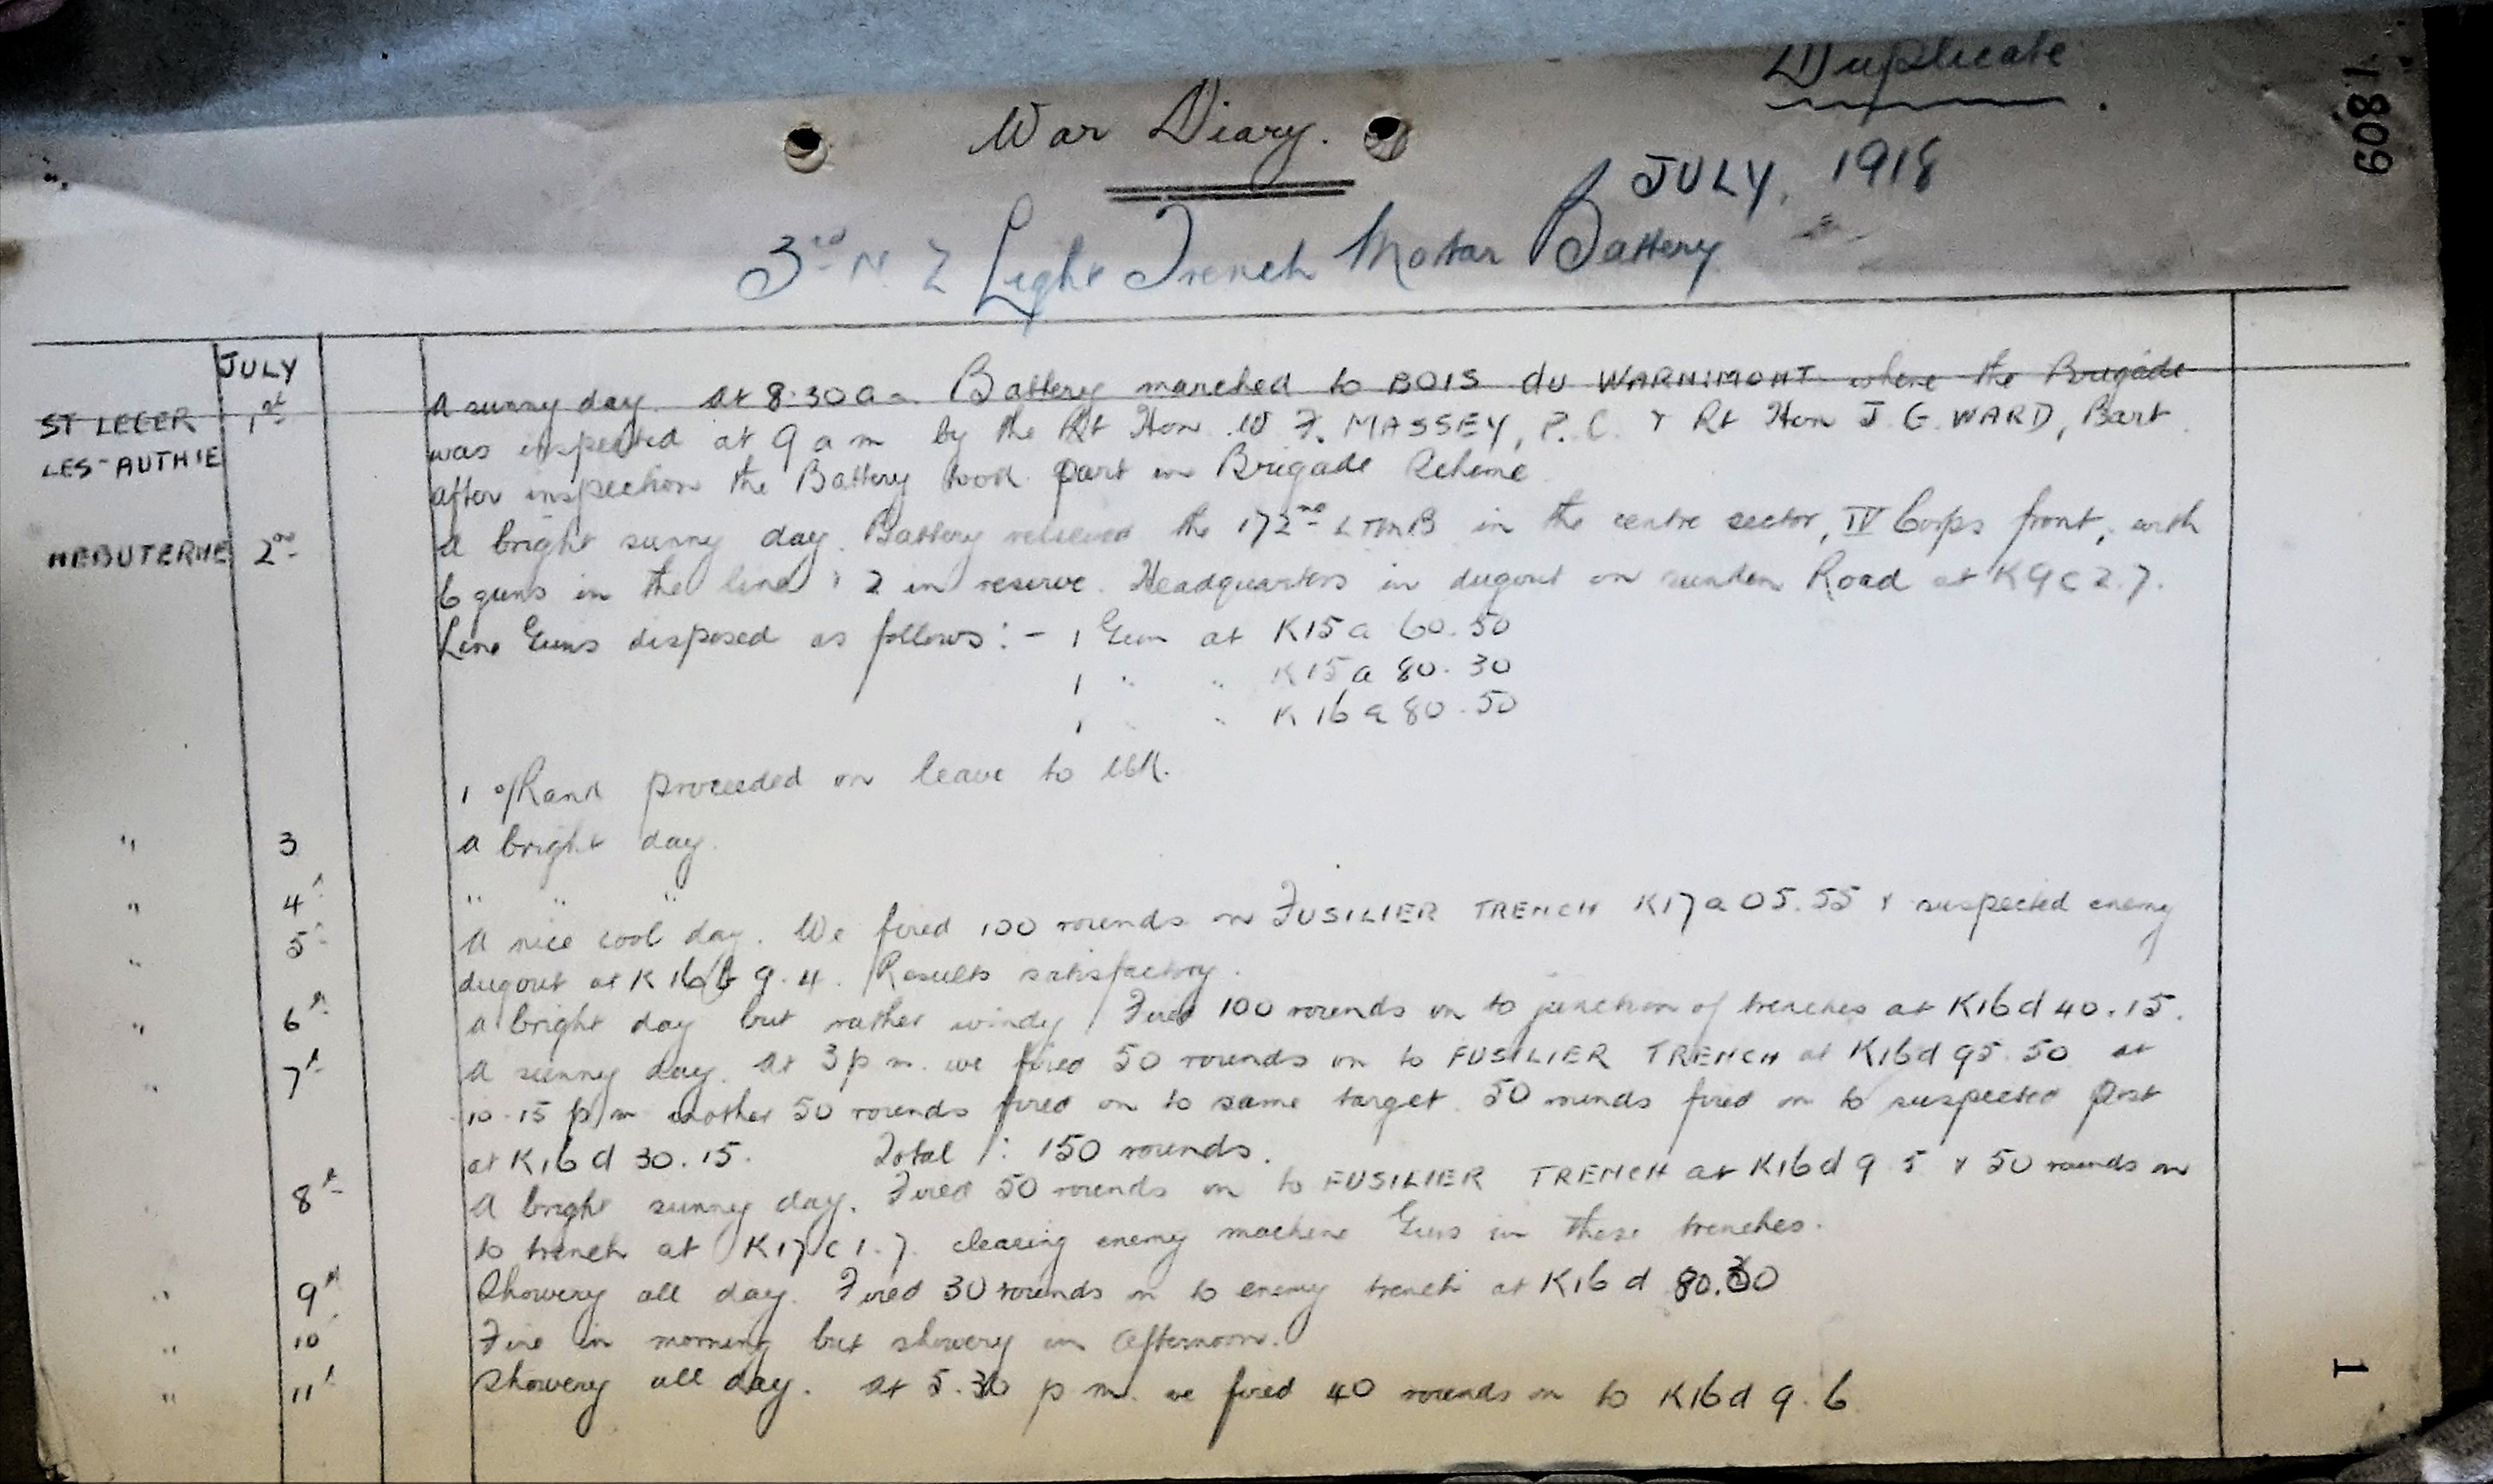 Duplicate
War Diary.
JULY, 1918
1809
3rd N Z Light Trench Motar Battery
JULY
ST LEGER 1st A sunny day. At 8.30 am Battery marched to BOIS du WARNIMONT where the Brigade
LES-AUTHIE was inspected at 9 a m by the Rt Hon W F. MASSEY, P.C. & Rt Hon J G WARD, Bart.
after inspection the Battery took part in Brigade Scheme
HEBUTERNE 2nd A bright sunny day. Battery relieved the 172nd LTMB in the centre sector, IV Corps front, with
6 guns in the line & 2 in reserve. Headquarters in dugout on sunken Road at K9c2.7.
Line Guns disposed as follows:- 1 Gun at K15a 60.50
1 " " K15a 80.30
1 " " K16a 80.50
1 o/Rank proceeded on leave to UK.
" 3 A bright day.
" 4th " " "
" 5th A nice cool day. We fired 100 rounds on FUSILIER TRENCH K17a05.55 & suspected enemy
dugout at K16b 9.4. Results satisfactory.
" 6th A bright day but rather windy. Fired 100 rounds on to junction of trenches at K16d 40.15.
" 7th A sunny day. At 3 p m. we fired 50 rounds on to FUSILIER TRENCH at K16d 95.50 at
10.15 p m another 50 rounds fired on to same target. 50 rounds fired on to suspected post
at K16d 30.15. Total : 150 rounds.
8th A bright sunny day. Fired 50 rounds on to FUSILIER TRENCH at K16d 9 5 & 50 rounds on
to trench at K17c1.7. clearing enemy machine Guns in these trenches.
" 9th Showery all day. Fired 30 rounds on to enemy trench at K16d 80.30
" 10 Fine in morning but showery in afternoon.
" 11th Showery all day. At 5.30 p m. we fired 40 rounds on to K16d 9.6
1